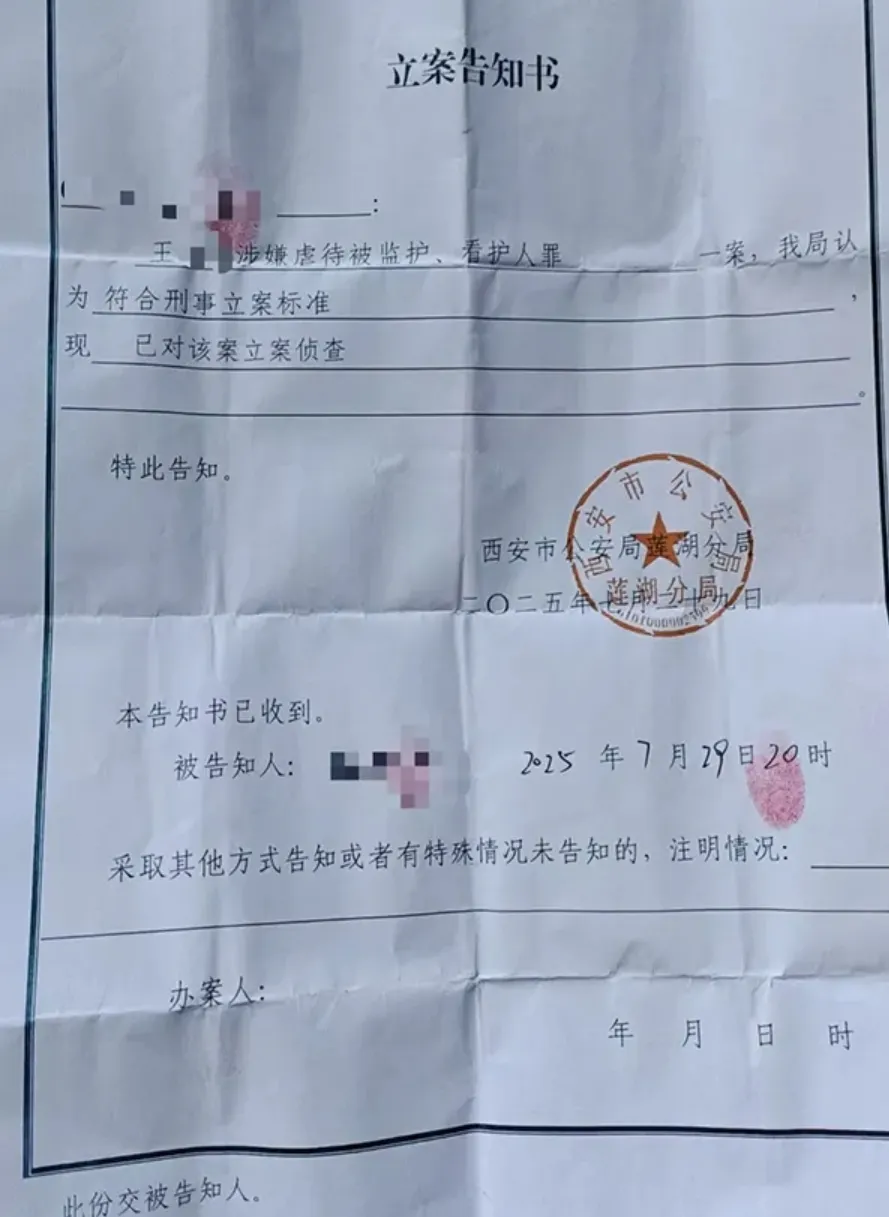 立案告知书
:
王 涉嫌虐待被监护、看护人罪 一案，我局认
为 符合刑事立案标准 ，
现 已对该案立案侦查
。
特此告知。
西安市公安局莲湖分局
二〇二五年七月二十九日
西安市公安局
莲湖分局
本告知书已收到。
被告知人： 2025 年 7 月 29 日 20 时
采取其他方式告知或者有特殊情况未告知的，注明情况：
办案人：
年 月 日 时
此份交被告知人。